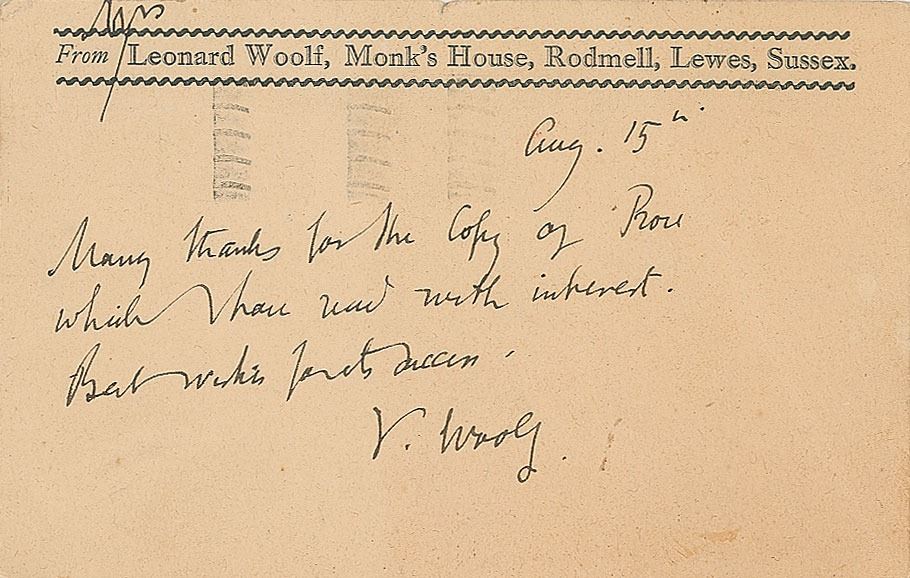 Mrs
From Leonard Woolf, Monk's House, Rodmell, Lewes, Sussex.
Aug. 15th
Many thanks for the Copy of Prose
which I have read with interest.
Best wishes for its success.
V. Woolf.